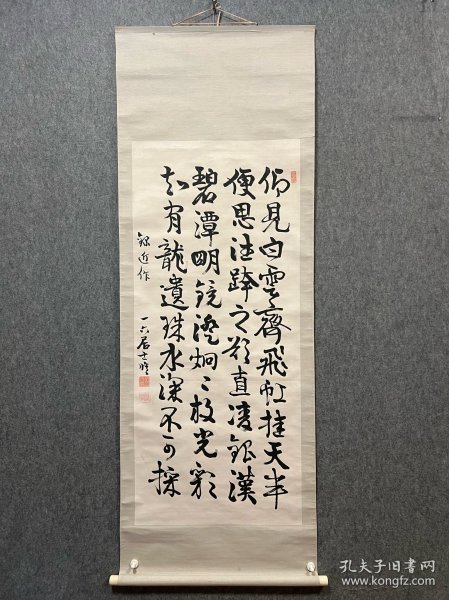 仰見白雲齊飛虹挂天半
便思跨之直凌銀漢
碧潭明鏡澄炯々放光彩
知有龍遺珠水深不可探
錄近作
一六居士
孔夫子旧书网
www.kongfz.com